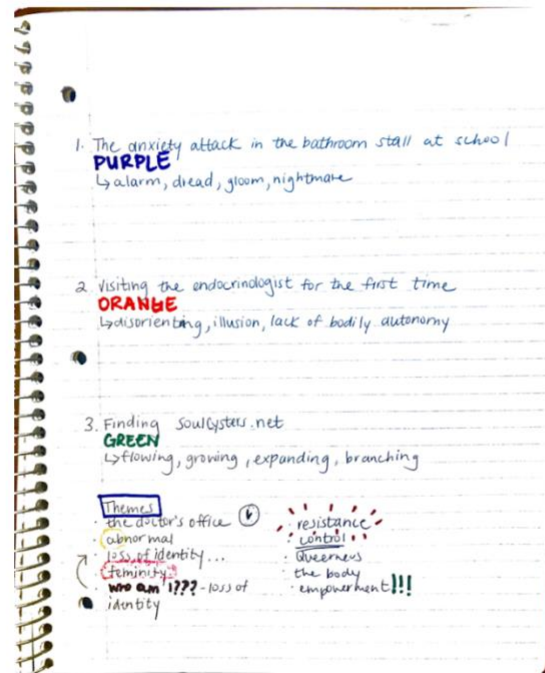 1. The anxiety attack in the bathroom stall at school
PURPLE
↳ alarm, dread, gloom, nightmare
2. Visiting the endocrinologist for the first time
ORANGE
↳ disorienting, illusion, lack of bodily autonomy
3. Finding SoulCysters.net
GREEN
↳ flowing, growing, expanding, branching
Themes
· the doctor's office
· abnormal
· loss of identity...
· feminity
· who am I??? - loss of
identity
· resistance
· control
· Queerness
· the body
· empowerment!!!